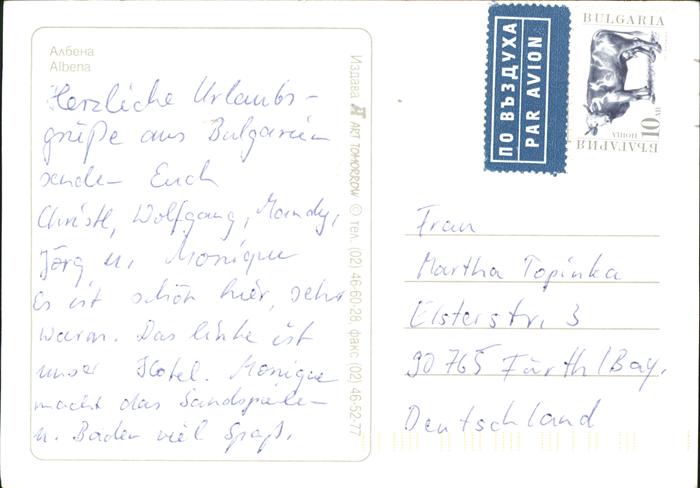 Албена
Albena
Herzliche Urlaubs-
grüße aus Bulgarien
senden Euch
Christl, Wolfgang, Mandy,
Jörg u. Monique
Es ist schön hier, sehr
warm. Das linke ist
unser Hotel. Monique
macht das Sandspielen
u. Baden viel Spaß.
Издава ART TOMORROW © тел. (02) 46-60-28, факс (02) 46-52-77
ПО ВЪЗДУХА
PAR AVION
BULGARIA
10 ЛВ
ПОЩА
БЪЛГАРИЯ
Frau
Martha Topinka
Elsterstr. 3
90765 Fürth/Bay.
Deutschland